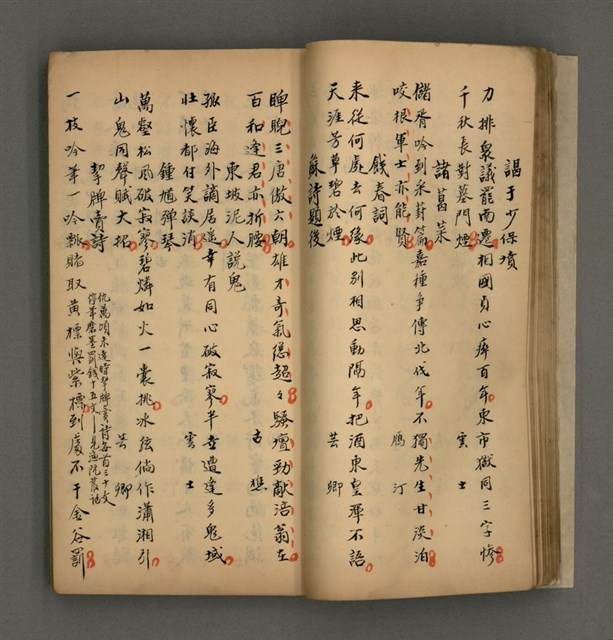 謁于少保墳
力排衆議罷南遷相國貞心瘁百年東市獄同三字慘
千秋長對墓門煙
寅士
諸葛菜
儲胥吟到采葑篇嘉種爭傳北伐年不獨先生甘淡泊
咬根軍士亦能賢
雁汀
餞春詞
来從何處去何緣此別相思動隔年把酒東皇渾不語
天涯芳草碧於煙
芸卿
蘇詩題後
睥睨三唐傲六朝雄才奇氣總超々騷壇勁敵涪翁在
百和逢君亦折腰
古樵
東坡泥人說鬼
孤臣海外謫居遙幸有同心破寂寥半世遭逢多鬼蜮
壯懷都付笑談消
雲士
鍾馗彈琴
萬壑松風破寂寥碧燐如火一囊挑冰弦倘作瀟湘引
山鬼同聲賦大招
芸卿
挈牌賣詩
仇萬頃未逹時挈牌賣詩每首三十文
停筆磨墨罰錢十五文見漁阮叢話
一枝吟筆一吟瓢賭取黃標與紫標到處不干金谷罰